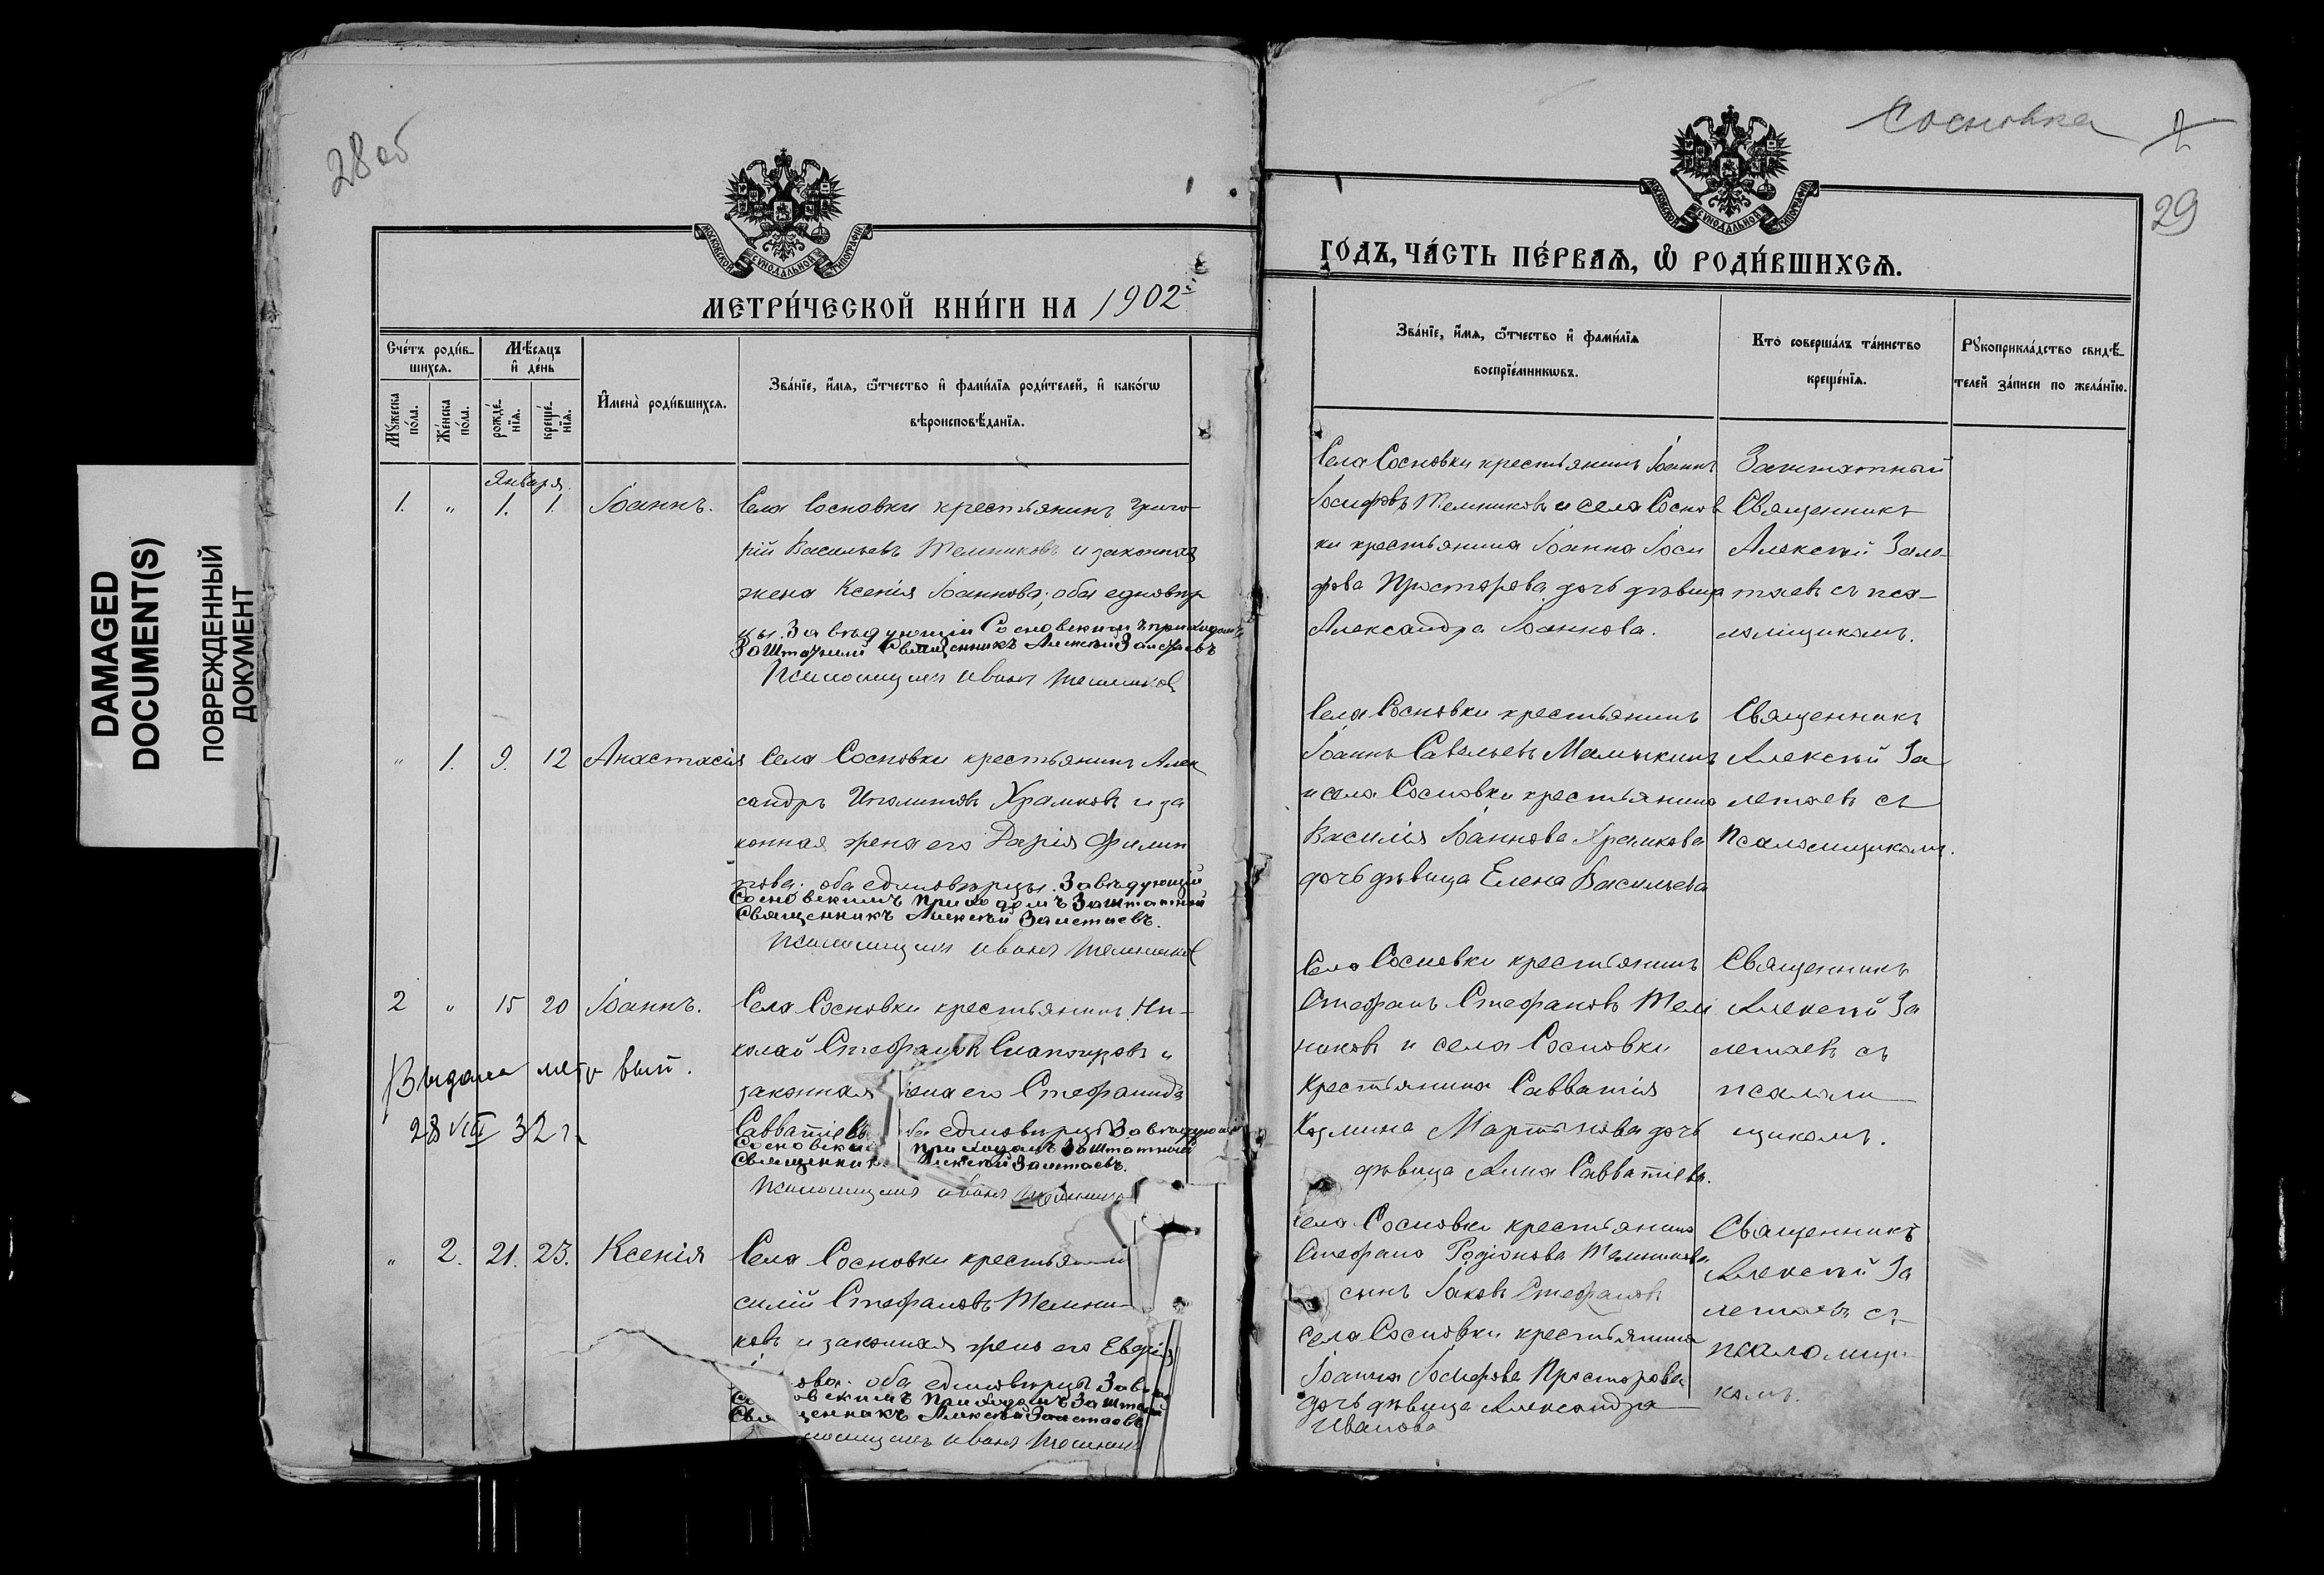 28 об
Сосновка
29
DAMAGED
DOCUMENT(S)
ПОВРЕЖДЕННЫЙ
ДОКУМЕНТ
МОСКОВСКОЙ СѴНОДАЛЬНОЙ ТИПОГРАФІИ
МЕТРИ́ЧЕСКОЙ КНИ́ГИ НА 1902
Сче́тъ роди́в-
шихся.
Мѣ́сяцъ
и҆ де́нь
Мꙋ́жеска
по́ла.
Же́нска
по́ла.
рожде́-
нїѧ.
креще́-
нїѧ.
И҆мена̀ роди́вшихсѧ.
Зва́нїе, и҆́мѧ, ѻ҆́тчество и҆ фами́лїѧ роди́телей, и҆ како́гѡ
вѣроисповѣ́данїѧ.
Января.
1. " 1. 1. Іоаннъ.
Села Сосновки крестьянинъ Григо-
рій Васильевъ Темниковъ и законная
жена Ксенія Іоаннова; оба едновѣр
цы. Завѣдующій Сосновскимъ приходомъ
Заштатный Священникъ Алексѣй Залетаевъ
Псаломщикъ Иванъ Темников
" 1. 9. 12 Анастасія
Села Сосновки крестьянинъ Алек
сандръ Иполитовъ Храмковъ и за
конная жена его Дарія Филип
пова. оба единовѣрцы. Завѣдующій
Сосновскимъ приходомъ Заштатный
Священникъ Алексѣй Залетаевъ.
Псаломщикъ Иванъ Темников
2 " 15 20 Іоаннъ.
Села Сосновки крестьянинъ Ни-
колай Стефановъ и
законная жена его Стефанида
Савватіева единовѣрцы Завѣдующій
Сосновским приходомъ Заштатный
Священник Алексѣй Залетаевъ.
Псаломщикъ Иванъ
Выдана мет вып.
28 VIII 32 г.
" 2. 21. 23. Ксенія
Села Сосновки крестьянин
силій Стефановъ Темни
ковъ и законная жена его
ова. оба единовѣрцы Завѣ
овскимъ приходомъ Заштатный
Священникъ Алексѣй Залетаевъ
ломщикъ Иванъ Темник
МОСКОВСКОЙ СѴНОДАЛЬНОЙ ТИПОГРАФІИ
ГО́ДЪ, ЧА́СТЬ ПЕ́РВАѦ, Ѡ҆ РОДИ́ВШИХСѦ.
Зва́нїе, и҆́мѧ, ѻ҆́тчество и҆ фами́лїѧ
воспрїе́мникѡвъ.
Кто̀ соверша́лъ та́инство
креще́нїѧ.
Рꙋкоприкла́дство свидѣ́-
телей за́писи по жела́нїю.
Села Сосновки крестьянинъ Іоаннъ
Іосифовъ Темниковъ и села Соснов
ки крестьянина Іоанна Іоси
фова Просторова дочь дѣвица
Александра Іоаннова.
Заштатный
Священникъ
Алексѣй Зале-
таевъ съ пса-
ломщикомъ.
Села Сосновки крестьянинъ
Іоаннъ Савельевъ Малышкинъ
и села Сосновки крестьянина
Василія Іоаннова Храмкова
дочь дѣвица Елена Васильева
Священникъ
Алексѣй За
летаевъ съ
псаломщикомъ.
Села Сосновки крестьянинъ
Стефанъ Стефановъ Тем
никовъ и села Сосновки
крестьянина Савватія
Козмина Мартынова дочь
дѣвица Анна Савватіева.
Священникъ
Алексѣй За
летаевъ съ
псалом
щикомъ.
села Сосновки крестьянина
Стефана Родіонова Темникова
сынъ Іаковъ Стефановъ
села Сосновки крестьянина
Іоанна Іосифова Просторова
дочь дѣвица Александра
Иванова
Священникъ
Алексѣй За
летаевъ съ
псаломщи
комъ.